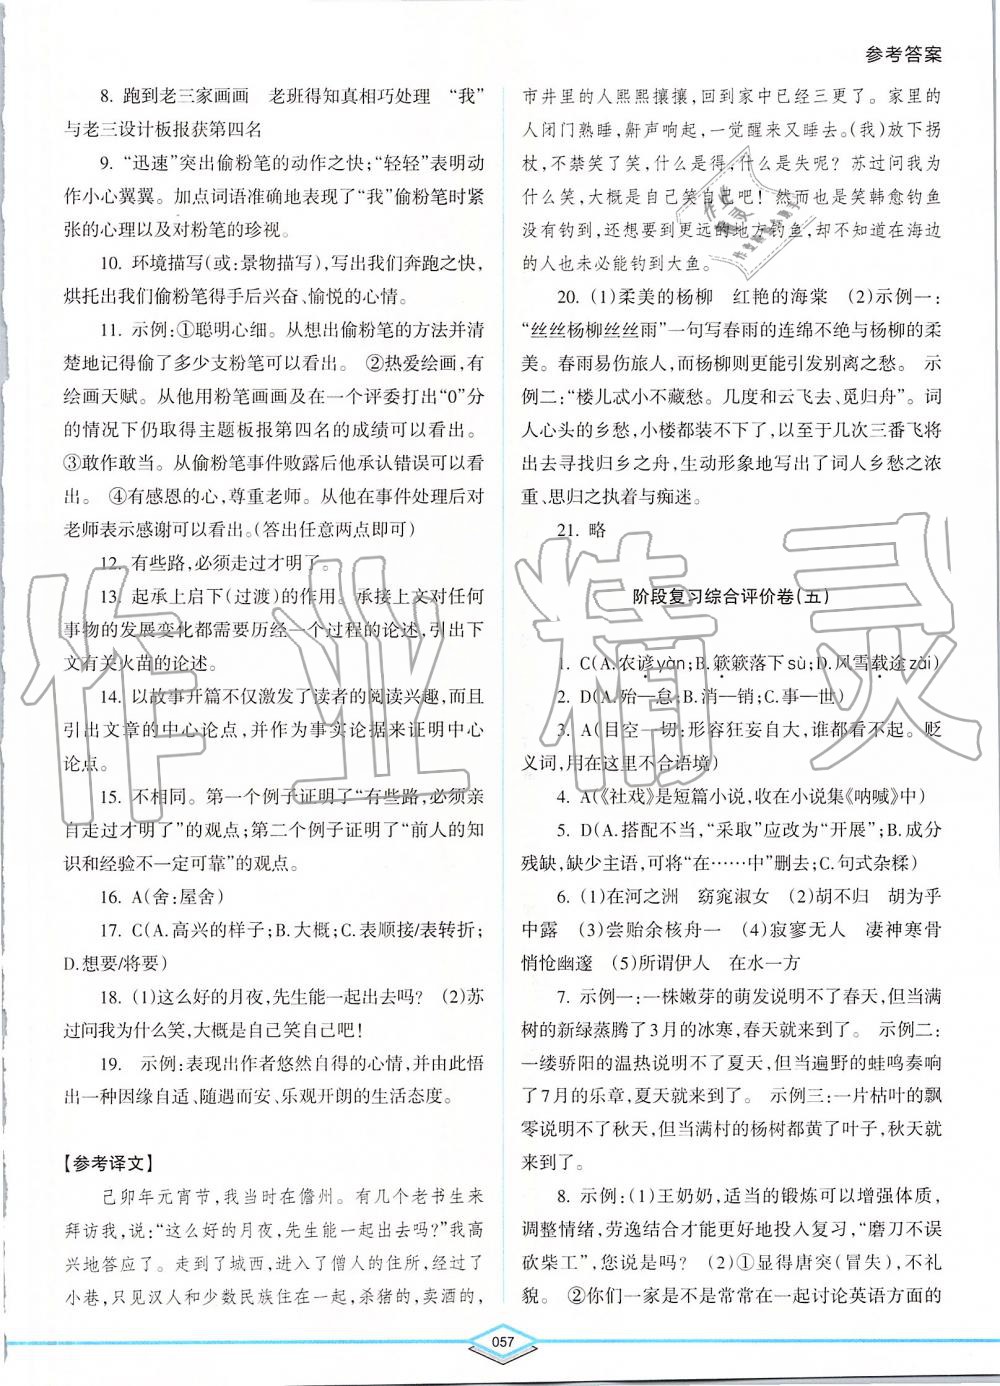 参考答案
8. 跑到老三家画画　老班得知真相巧处理　“我”
与老三设计板报获第四名
9. “迅速”突出偷粉笔的动作之快;“轻轻”表明动
作小心翼翼。加点词语准确地表现了“我”偷粉笔时紧
张的心理以及对粉笔的珍视。
10. 环境描写(或:景物描写),写出我们奔跑之快,
烘托出我们偷粉笔得手后兴奋、愉悦的心情。
11. 示例:①聪明心细。从想出偷粉笔的方法并清
楚地记得偷了多少支粉笔可以看出。　②热爱绘画,有
绘画天赋。从他用粉笔画画及在一个评委打出“0”分
的情况下仍取得主题板报第四名的成绩可以看出。
③敢作敢当。从偷粉笔事件败露后他承认错误可以看
出。　④有感恩的心,尊重老师。从他在事件处理后对
老师表示感谢可以看出。(答出任意两点即可)
12. 有些路,必须走过才明了。
13. 起承上启下(过渡)的作用。承接上文对任何
事物的发展变化都需要历经一个过程的论述,引出下
文有关火苗的论述。
14. 以故事开篇不仅激发了读者的阅读兴趣,而且
引出文章的中心论点,并作为事实论据来证明中心
论点。
15. 不相同。第一个例子证明了“有些路,必须亲
自走过才明了”的观点;第二个例子证明了“前人的知
识和经验不一定可靠”的观点。
16. A(舍:屋舍)
17. C(A.高兴的样子;B.大概;C.表顺接/表转折;
D.想要/将要)
18. (1)这么好的月夜,先生能一起出去吗?　(2)苏
过问我为什么笑,大概是自己笑自己吧!
19. 示例:表现出作者悠然自得的心情,并由此悟
出一种因缘自适、随遇而安、乐观开朗的生活态度。
【参考译文】
己卯年元宵节,我当时在儋州。有几个老书生来
拜访我,说:“这么好的月夜,先生能一起出去吗?”我高
兴地答应了。走到了城西,进入了僧人的住所,经过了
小巷,只见汉人和少数民族住在一起,杀猪的,卖酒的,
市井里的人熙熙攘攘,回到家中已经三更了。家里的
人闭门熟睡,鼾声响起,一觉醒来又再睡去。(我)放下拐
杖,不禁笑了笑,什么是得,什么是失呢?　苏过问我为
什么笑,大概是自己笑自己吧!　然而也是笑韩愈钓鱼
没有钓到,还想要到更远的地方钓鱼,却不知道在海边
的人也未必能钓到大鱼。
20. (1)柔美的杨柳　红艳的海棠　(2)示例一:
“丝丝杨柳丝丝雨”一句写春雨的连绵不绝与杨柳的柔
美。春雨易伤旅人,而杨柳则更加引发别离之愁。　示
例二:“楼儿忒小不藏愁。几度和云飞去、觅归舟”。词
人心头的乡愁,小楼都装不下了,以至于几次三番飞将
出去寻找归乡之舟,生动形象地写出了词人乡愁之浓
重、思归之执着与痴迷。
21. 略
阶段复习综合评价卷(五)
1. C(A.农谚yàn;B.簌簌落下sù;D.风雪载途zài)
2. D(A.殆—怠;B.消—销;C.事—世)
3. A(目空一切:形容狂妄自大,谁都看不起。贬
义词,用在这里不合语境)
4. A(《社戏》是短篇小说,收在小说集《呐喊》中)
5. D(A.搭配不当,“采取”应改为“开展”;B.成分
残缺,缺少主语,可将“在⋯⋯中”删去;C.句式杂糅)
6. (1)在河之洲　窈窕淑女　(2)胡不归　胡为乎
中露　(3)尝贻余核舟一　(4)寂寥无人　凄神寒骨
悄怆幽邃　(5)所谓伊人　在水一方
7. 示例一:一株嫩芽的萌发说明不了春天,但当满
树的新绿蒸腾了3月的冰寒,春天就来到了。　示例二:
一缕骄阳的温热说明不了夏天,但当遍野的蛙鸣奏响
了7月的乐章,夏天就来到了。　示例三:一片枯叶的飘
零说明不了秋天,但当满村的杨树都黄了叶子,秋天就
来到了。
8. 示例:(1)王奶奶,适当的锻炼可以增强体质,
调整情绪,劳逸结合才能更好地投入复习,“磨刀不误
砍柴工”,您说是吗?　(2)①显得唐突(冒失),不礼
貌。　②你们一家是不是常常在一起讨论英语方面的
057
作业精灵